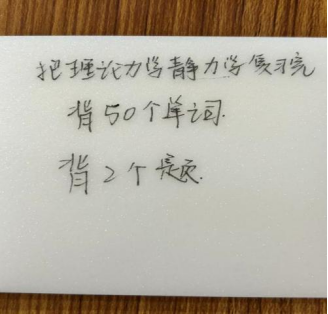 把理论力学静力学复习完
背50个单词.
背2个